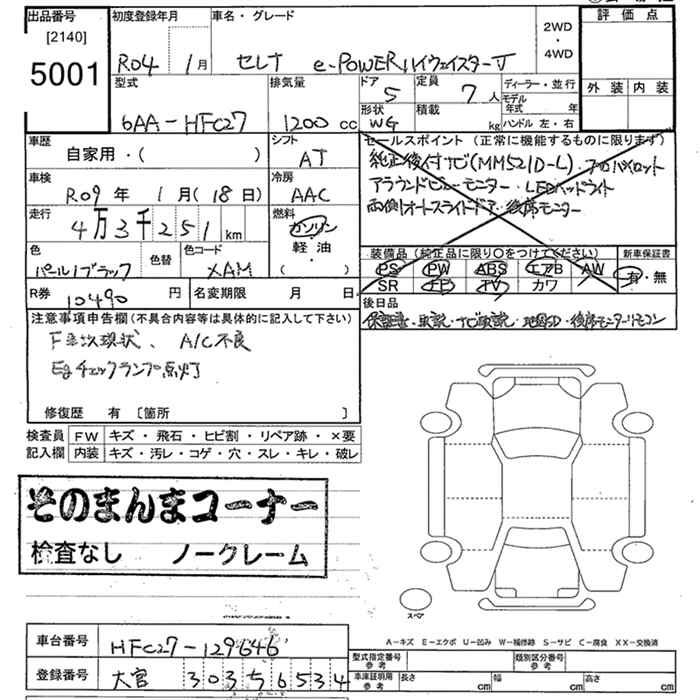 出品番号
[2140]
5001
初度登録年月
R04 1月
車名・グレード
セレナ e-POWERハイウェイスターV
2WD
・
4WD
評価点
外装 内装
型式
6AA-HFC27
排気量
1200 cc
ドア
5
形状
WG
定員
7 人
積載
kg
ディーラー・並行
モデル年式 年
ハンドル 左・右
車歴
自家用・( )
シフト
AT
車検
R09年 1月(18日)
冷房
AAC
走行
4万3千251 km
燃料
ガソリン
軽油
( )
色
パール/ブラック
色替
色コード
XAM
R券
10490 円
名変期限 月 日
セールスポイント (正常に機能するものに限ります)
純正後付ナビ(MM521D-L)・プロパイロット
アラウンドビューモニター・LEDヘッドライト
両側オートスライドドア・後席モニター
装備品(純正品に限り○をつけてください)
PS PW ABS エアB AW
SR TV カワ
新車保証書
有・無
後日品
保証書・取説・ナビ取説・地図SD・後席モニターリモコン
注意事項申告欄(不具合内容等は具体的に記入して下さい)
現状、A/C不良
Egチェックランプ点灯
修復歴 有 [箇所 ]
検査員記入欄
FW キズ・飛石・ヒビ割・リペア跡・×要
内装 キズ・汚レ・コゲ・穴・スレ・キレ・破レ
そのまんまコーナー
検査なし ノークレーム
スペア
A-キズ E-エクボ U-凹み W-補修跡 S-サビ C-腐食 XX-交換済
車台番号
HFC27-129646
登録番号
大宮 303 56534
型式指定番号
参考
類別区分番号
参考
車庫証明用
参考
長さ cm
幅 cm
高さ cm